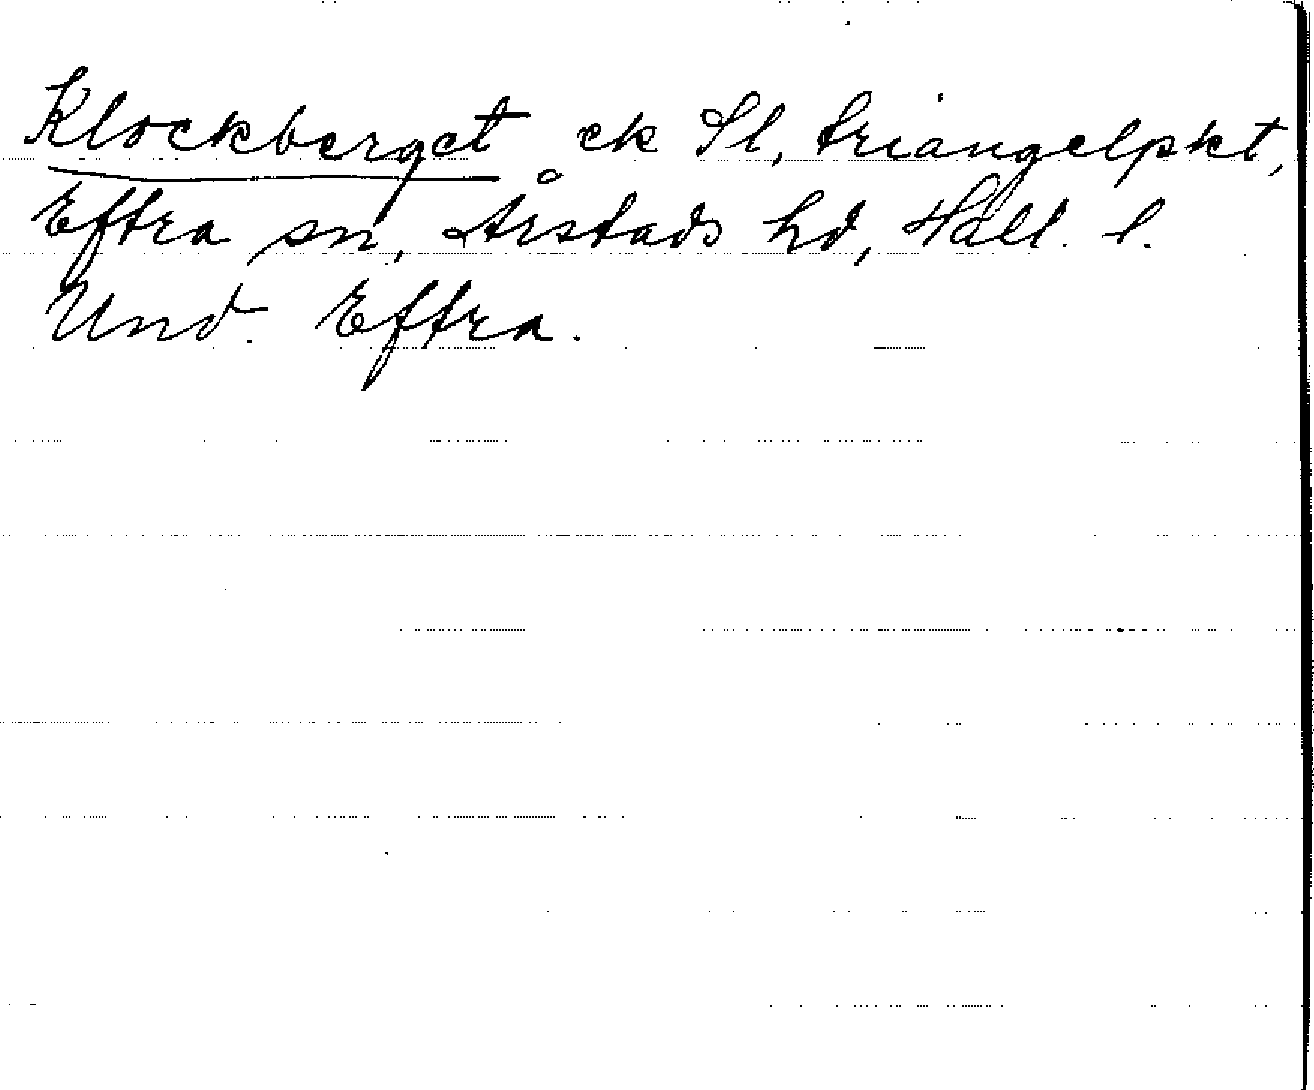 Klockberget ek Sl, triangelpkt,
Eftra sn, Årstads hd, Hall. l.
Und. Eftra.